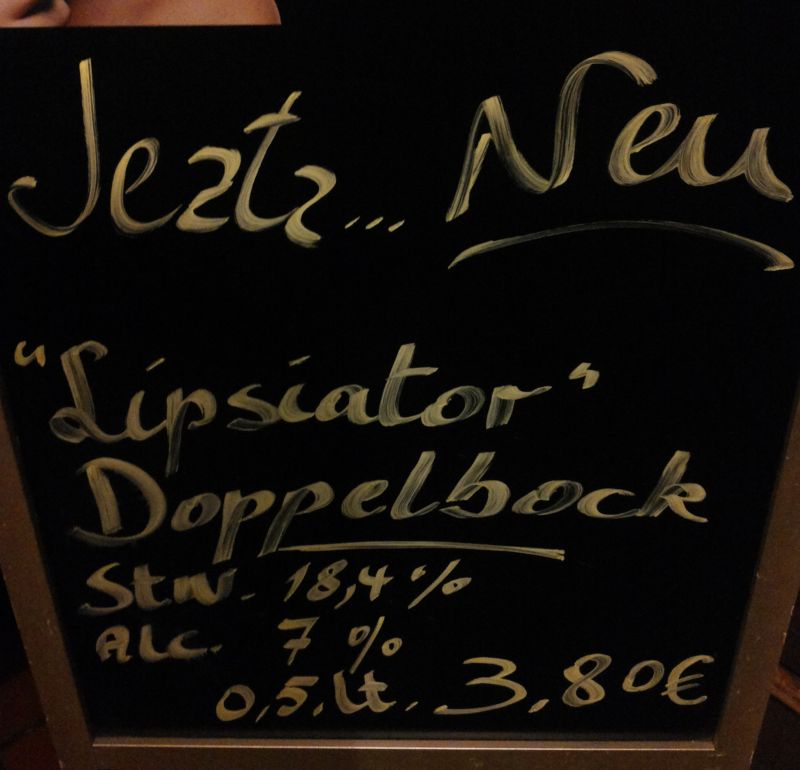 Jeztz... Neu
"Lipsiator"
Doppelbock
Stw. 18,4%
ALC. 7 %
0,5.lt. 3.80€